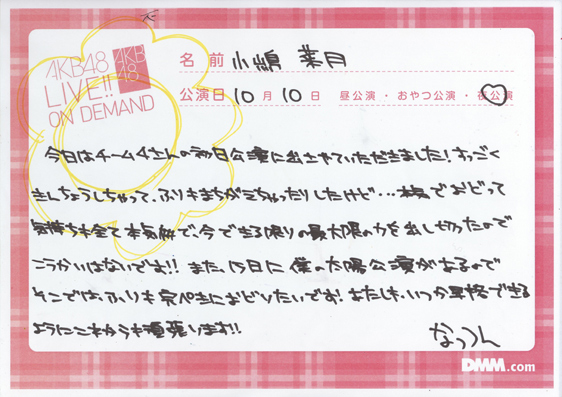 AKB48
LIVE!!
ON DEMAND
AKB
48
名 前 小嶋 菜月
公演日 10月10日 昼公演・おやつ公演・夜公演
今日はチーム4さんの初日公演に出させていただきました!すっごく
きんちょうしちゃって、ふりもまちがえちゃったりしたけど…本気でおどって
気持ちも全て本気で、今できる限りの最大限の力を出し切ったので
こうかいはないでよ!! また、13日に僕の太陽公演があるので
そこでは、ふりも完ペきにおどりたいです!あたしも、いつか昇格できる
ようにこれからも頑張ります!!
なっつん
DMM.com